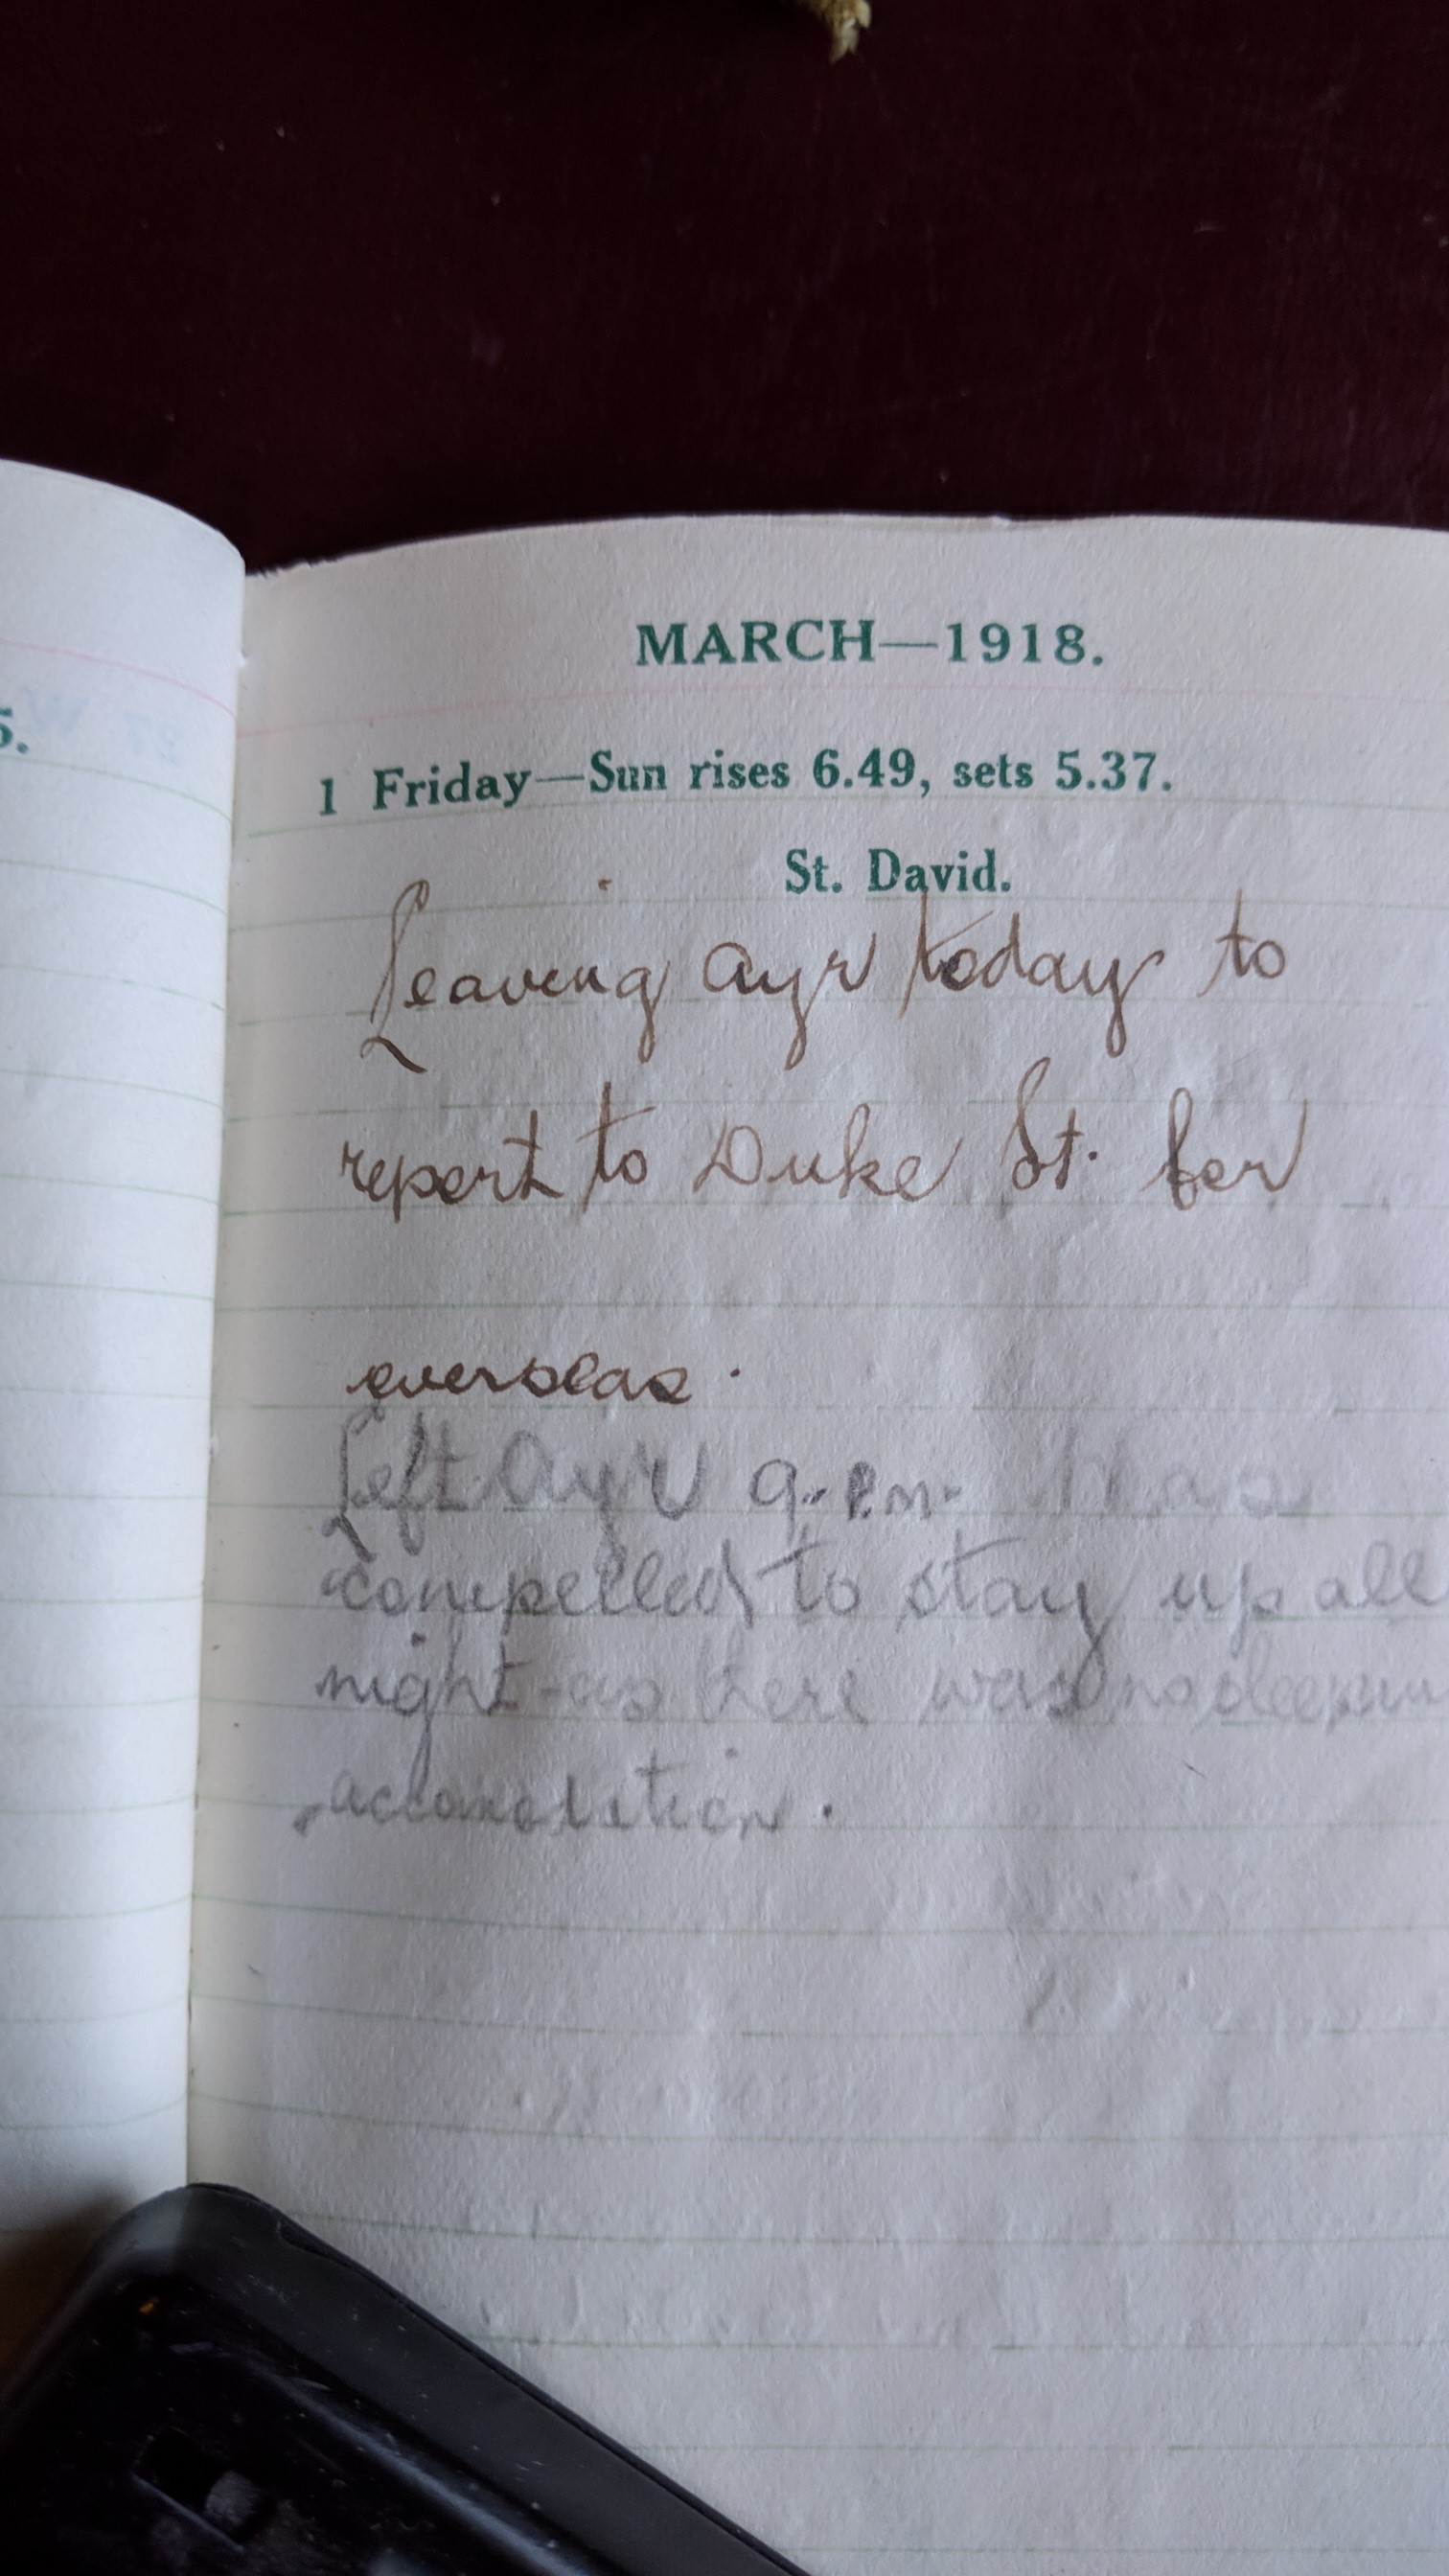 5.
MARCH—1918.
1 Friday—Sun rises 6.49, sets 5.37.
St. David.
Leaving Ayr today to
report to Duke St. for
overseas.
Left Ayr 9.p.m. Was
compelled to stay up all
night-as there was no sleepin
accomodation.